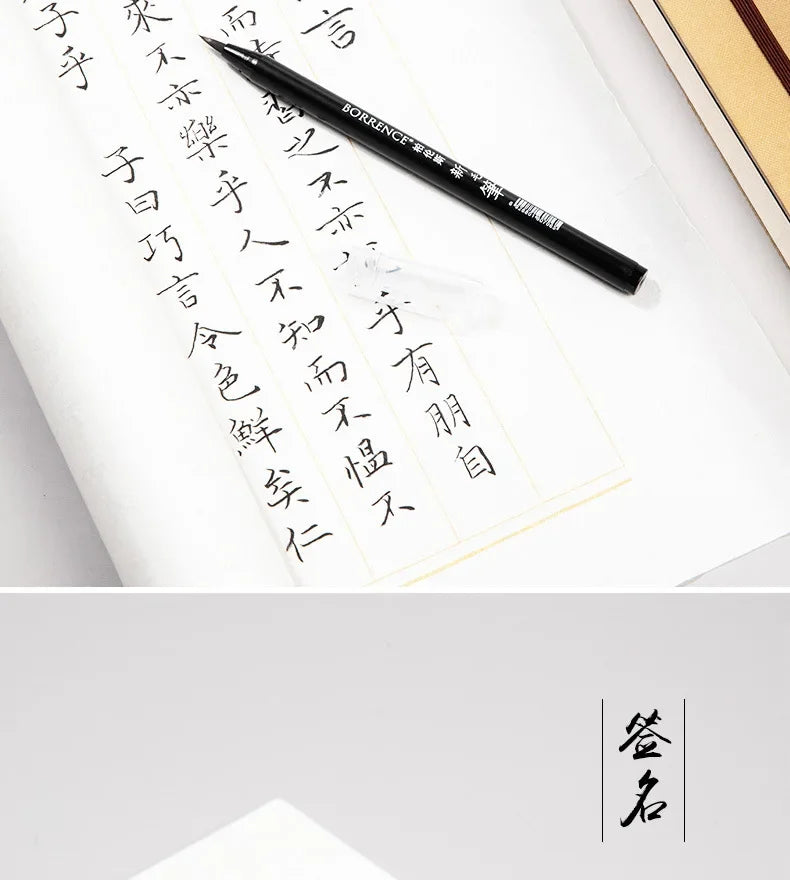 言
而時習之不亦乎有朋自
來不亦樂乎人不知而不愠不
子乎 子曰巧言令色鮮矣仁
BORRENCE® 柏伦斯 新毛筆
签名